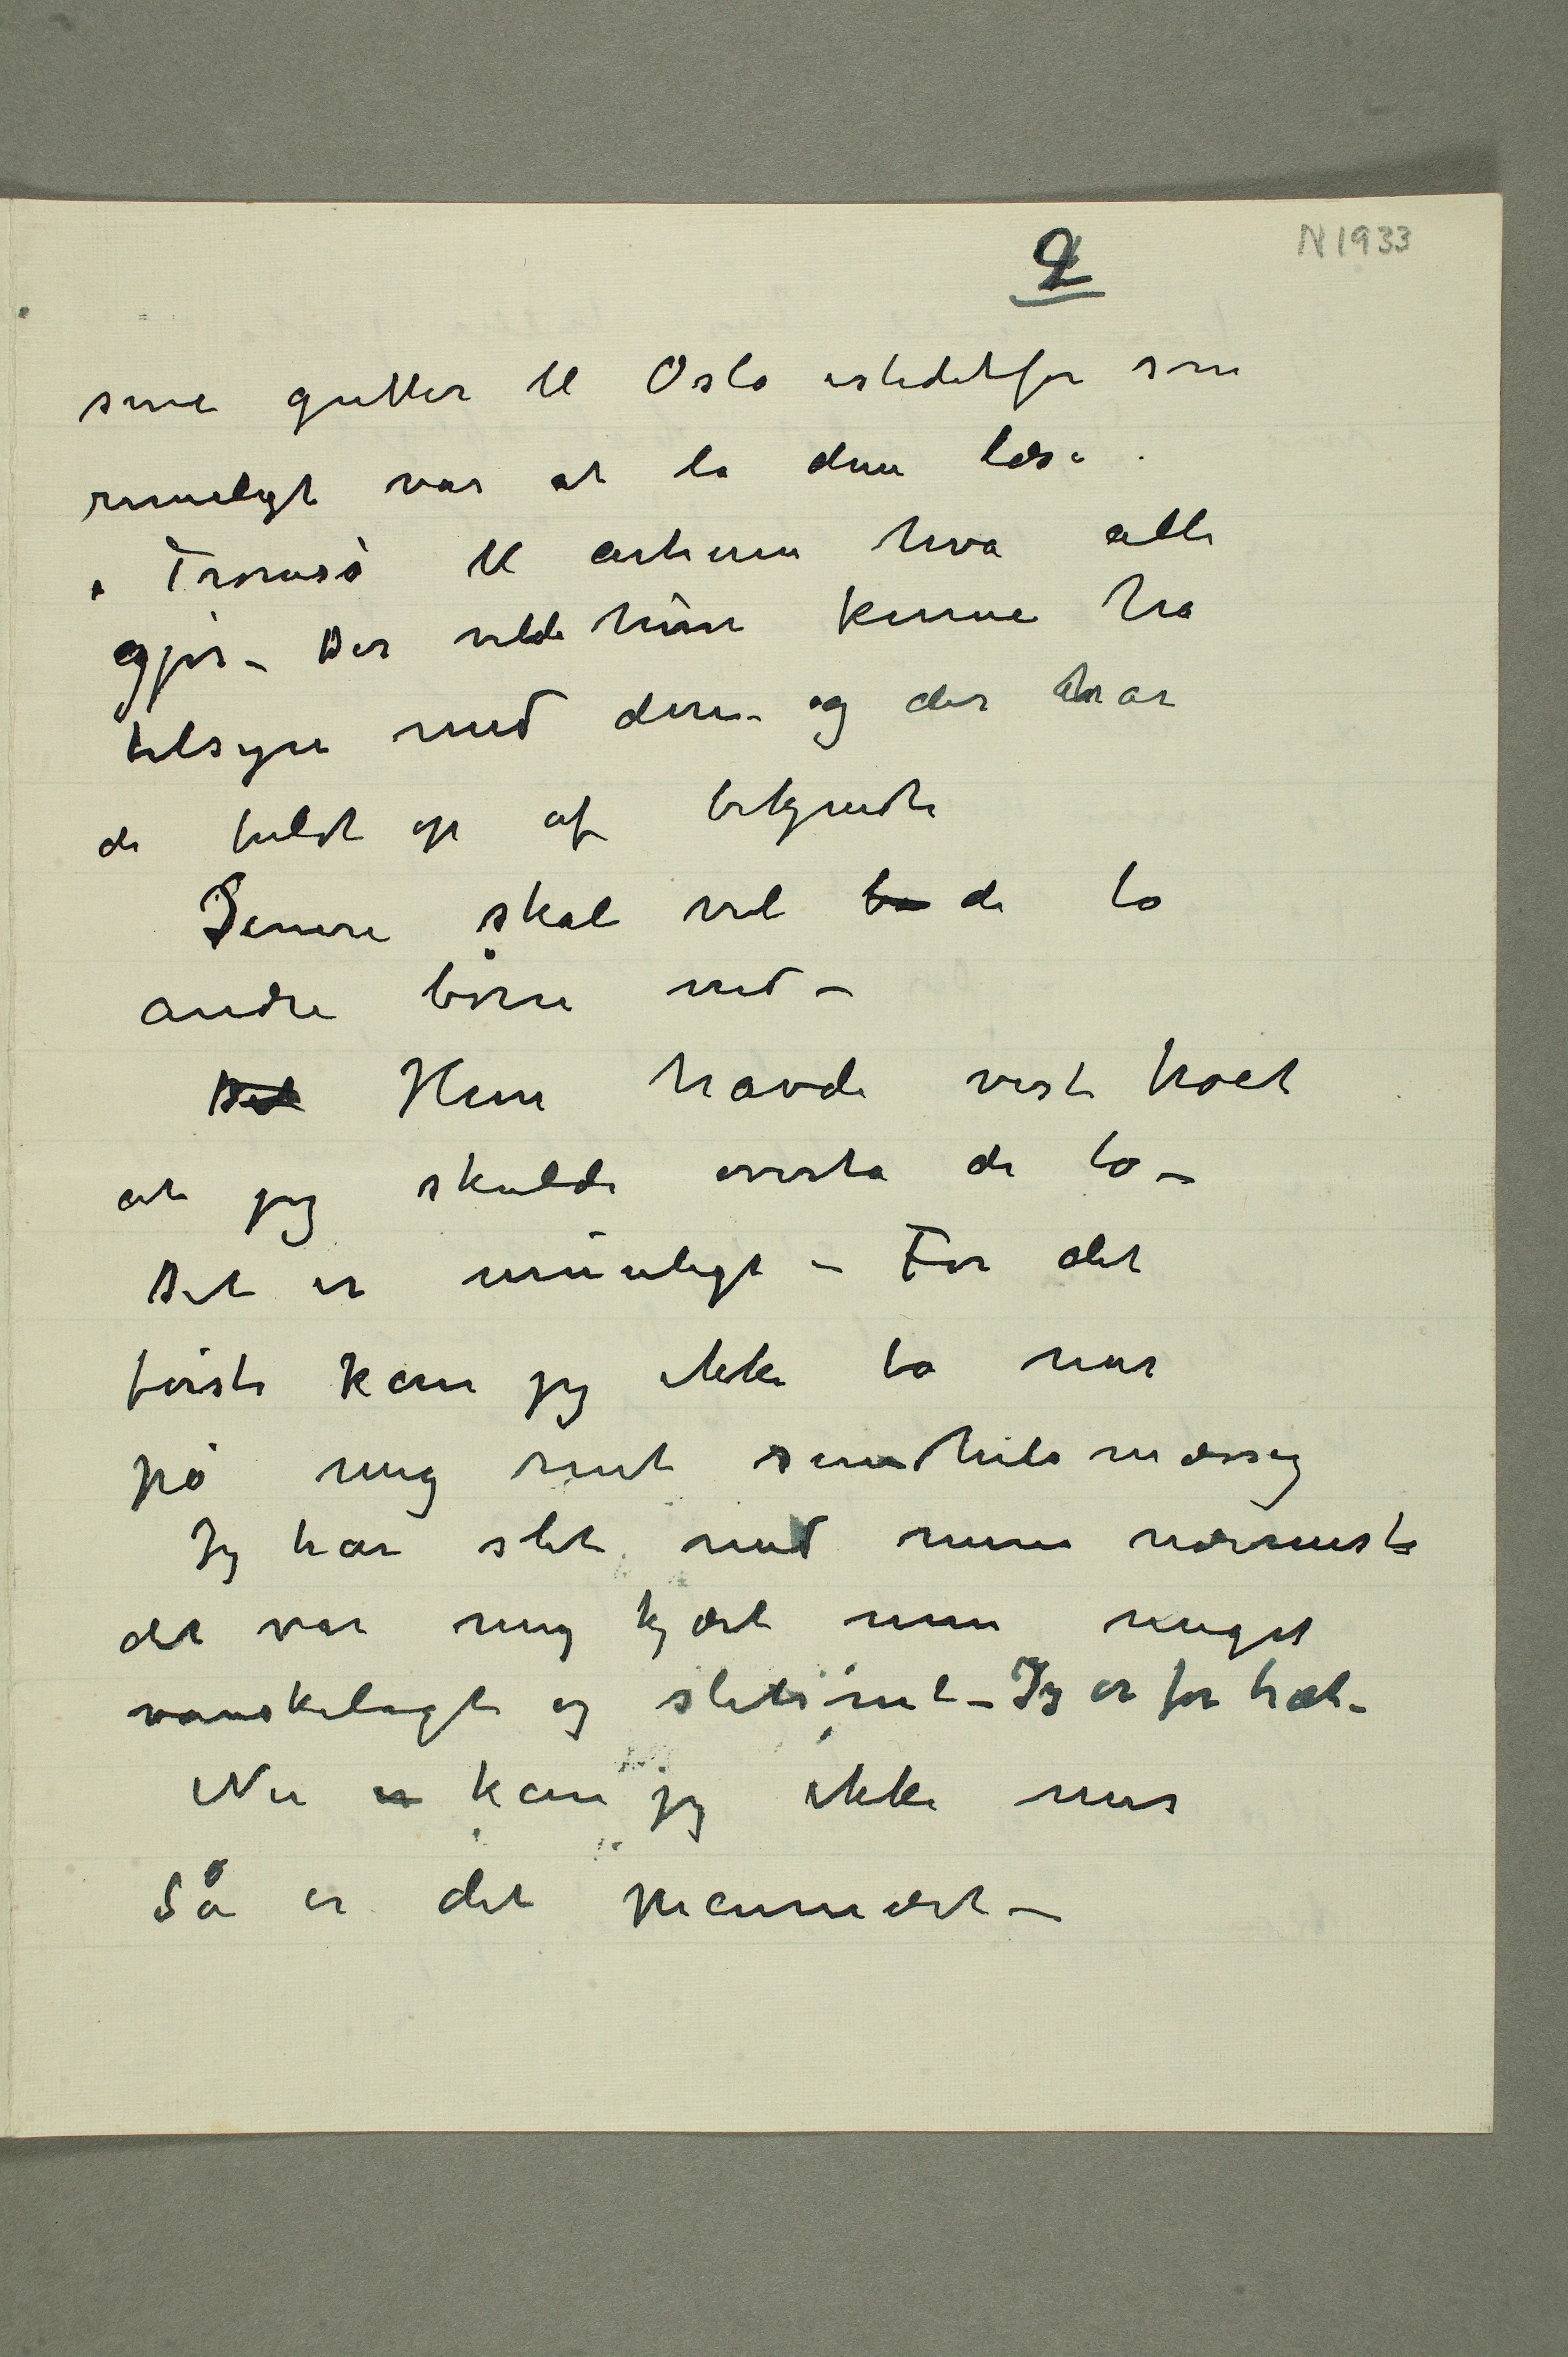 N 1933
2
sine gutter til Oslo istedetfor som
rimeligt var at la dem læse
i Tromsø til artium hva alle
gjør – Der vilde hun kunne ha
tilsyn med dem – og der har
de fuldt op af bekjendte
Senere skal vel de to
andre børn ned –
Det Hun havde visst troet
at jeg skulde overta de to –
Det er umuligt – For det
første kan jeg ikke ta mer
på mig rent sundhedsmæssig
Jeg har slit med mine nærmeste
det var mig kjært men meget
vanskeligt og slitsomt – Jeg er for træt –
Nu er kan jeg ikke mer
Så er det pecuniært –